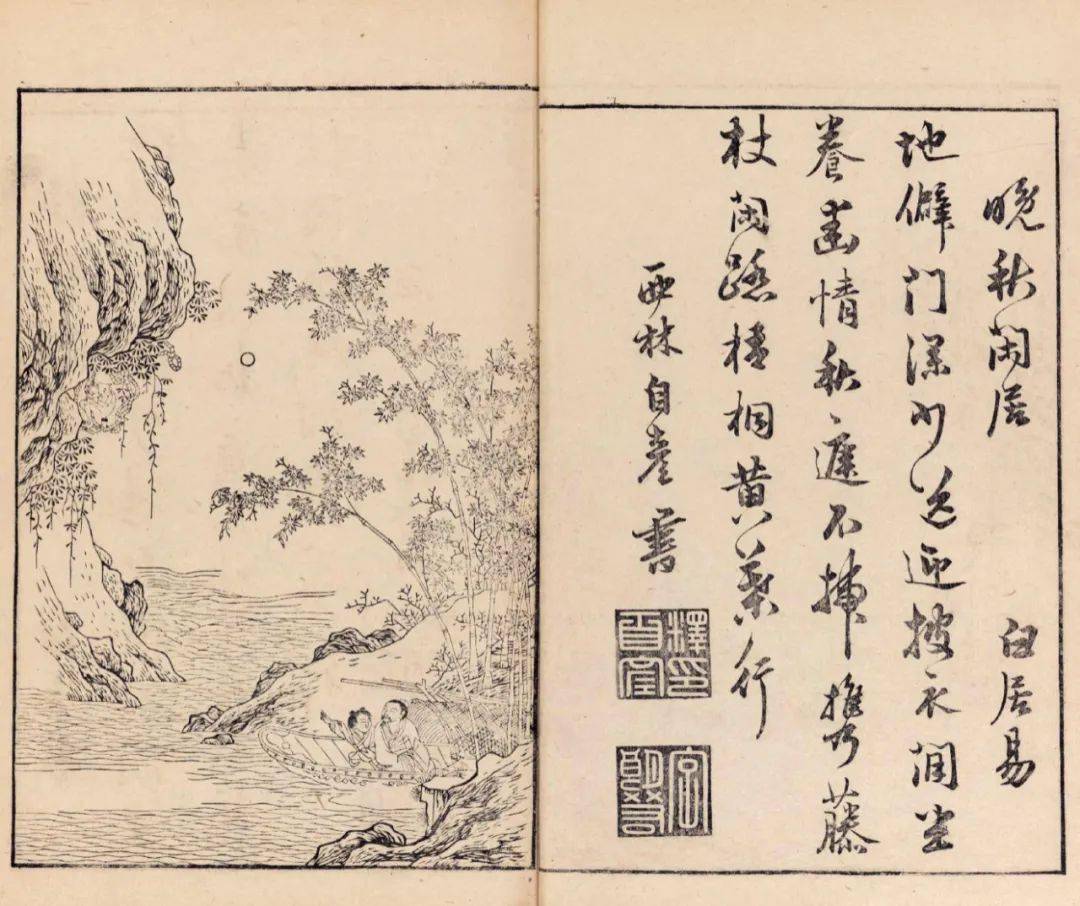 晚秋閑居 白居易
地僻门深少送迎披衣闲坐
養幽情秋庭不掃携藤
杖閑踏梧桐黄葉行
西林自彦書